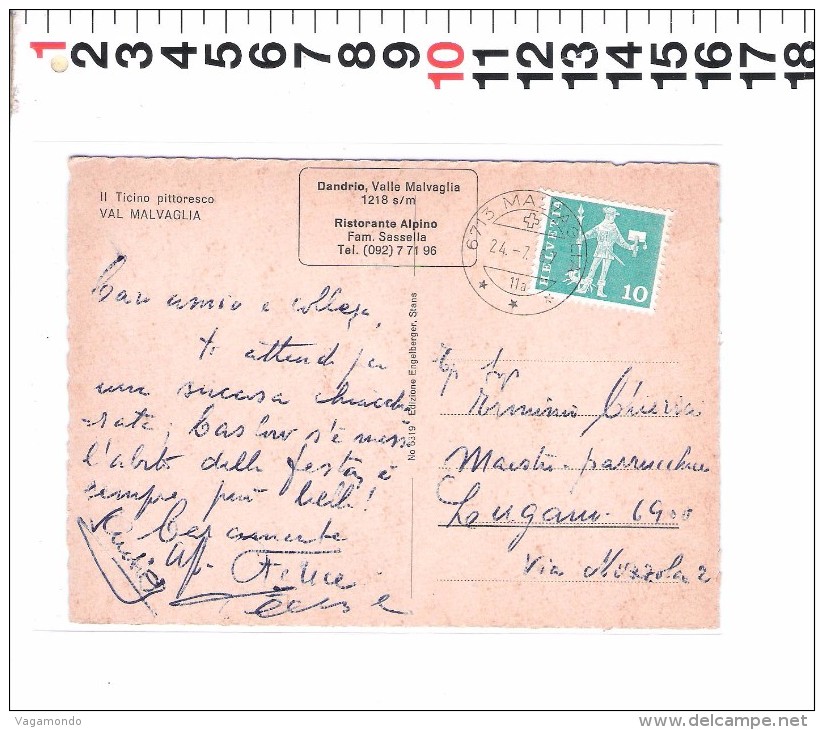 1 2 3 4 5 6 7 8 9 10 11 12 13 14 15 16 17 18
Il Ticino pittoresco
VAL MALVAGLIA
Dandrio, Valle Malvaglia
1218 s/m
Ristorante Alpino
Fam. Sassella
Tel. (092) 7 71 96
6713 MALVAGLIA
24.-7.
11a
HELVETIA
10
No 6319 Edizione Engelberger, Stans
Caro amico e collega,
ti attendo per
una sucosa chiacche
-rata; Carlow s'è messo
l'abito della festa, è
sempre più bello!
Caramente
Felice
Maestro parrucchiere
Lugano 6900
Via
Vagamondo
delcampe.net